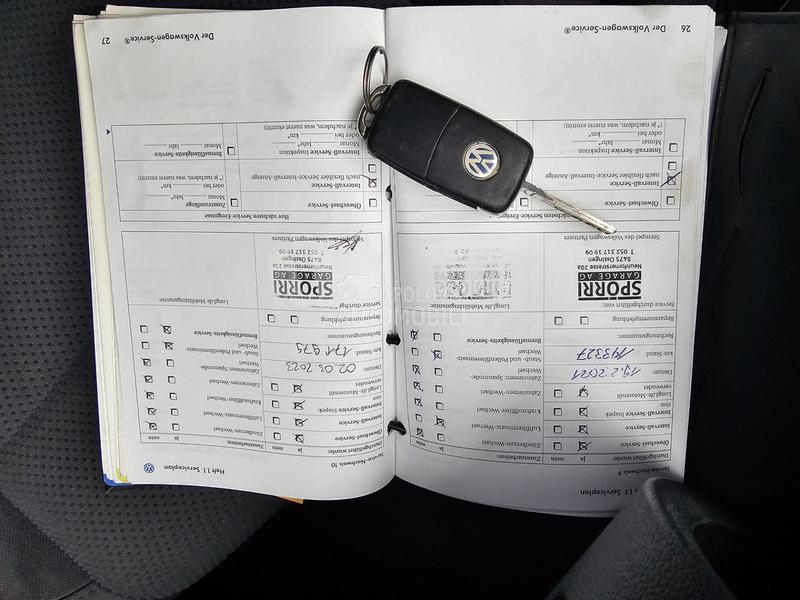 Heft 1.1 Serviceplan
Service-Nachweis 9
Durchgeführt wurde:
ja nein
Zusatzarbeiten:
ja nein
Ölwechsel-Service
Zündkerzen-Wechsel
Intervall-Service
Luftfiltereinsatz-Wechsel
Intervall-Service Inspektion
Kraftstofffilter-Wechsel
LongLife-Motorenöl verwendet
Zahnriemen-Wechsel
Datum: 19.2.2021
Zahnriemen-Spannrolle-Wechsel
km-Stand:
Staub- und Pollenfiltereinsatz-Wechsel
Rechnungsnummer:
Bremsflüssigkeits-Wechsel
Reparaturempfehlung
Service durchgeführt von:
LongLife Mobilitätsgarantie
SPORRI
GARAGE AG
Neunfornerstrasse 20a
8475 Ossingen
T 052 317 19 09
Stempel des Volkswagen Partners
Ölwechsel-Service
Intervall-Service
nach flexibler Service-Intervall-Anzeige
Intervall-Service Inspektion
bei km*
oder
Monat Jahr
(* je nachdem, was zuerst eintritt)
26 Der Volkswagen-Service®
Heft 1.1 Serviceplan
Service-Nachweis 10
Durchgeführt wurde:
ja nein
Zusatzarbeiten:
ja nein
Ölwechsel-Service
Zündkerzen-Wechsel
Intervall-Service
Luftfiltereinsatz-Wechsel
Intervall-Service Inspektion
Kraftstofffilter-Wechsel
LongLife-Motorenöl verwendet
Zahnriemen-Wechsel
Datum: 02.03.2023
Zahnriemen-Spannrolle-Wechsel
km-Stand: 171 975
Staub- und Pollenfiltereinsatz-Wechsel
Rechnungsnummer:
Bremsflüssigkeits-Service
Reparaturempfehlung
LongLife Mobilitätsgarantie
SPORRI
GARAGE AG
Neunfornerstrasse 20a
8475 Ossingen
T 052 317 19 09
Stempel des Volkswagen Partners
Ihre nächsten Service-Ereignisse
Ölwechsel-Service
Zusatzumfänge
Intervall-Service
nach flexibler Service-Intervall-Anzeige
Monat Jahr
oder bei km*
(* je nachdem, was zuerst eintritt)
Intervall-Service Inspektion
bei km*
oder
Monat Jahr
(* je nachdem, was zuerst eintritt)
Bremsflüssigkeits-Service
Monat Jahr
Der Volkswagen-Service® 27